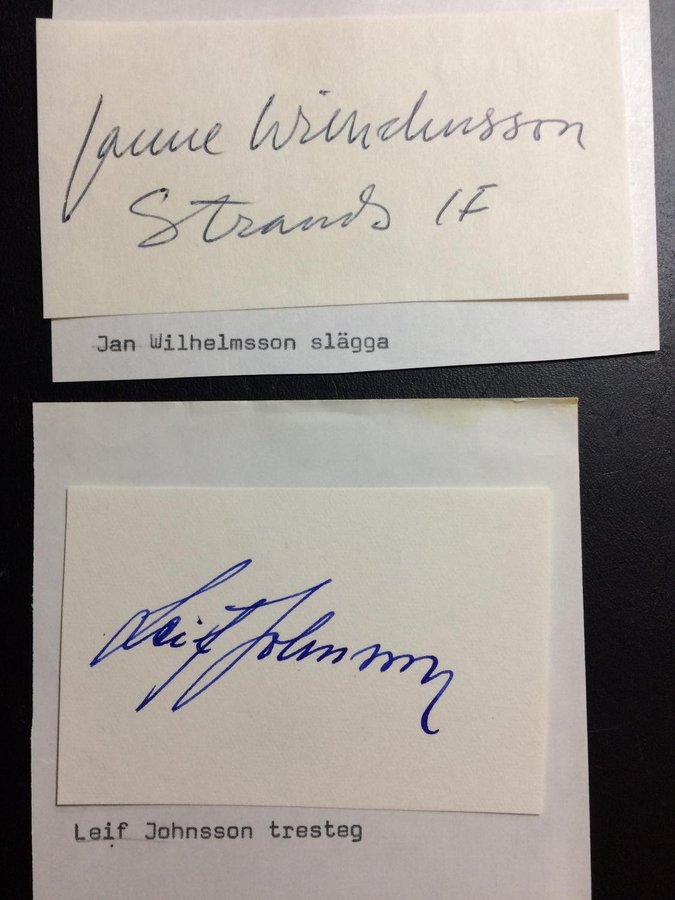 Janne Wilhelmsson
Strands IF
Jan Wilhelmsson slägga
Leif Johnsson
Leif Johnsson tresteg